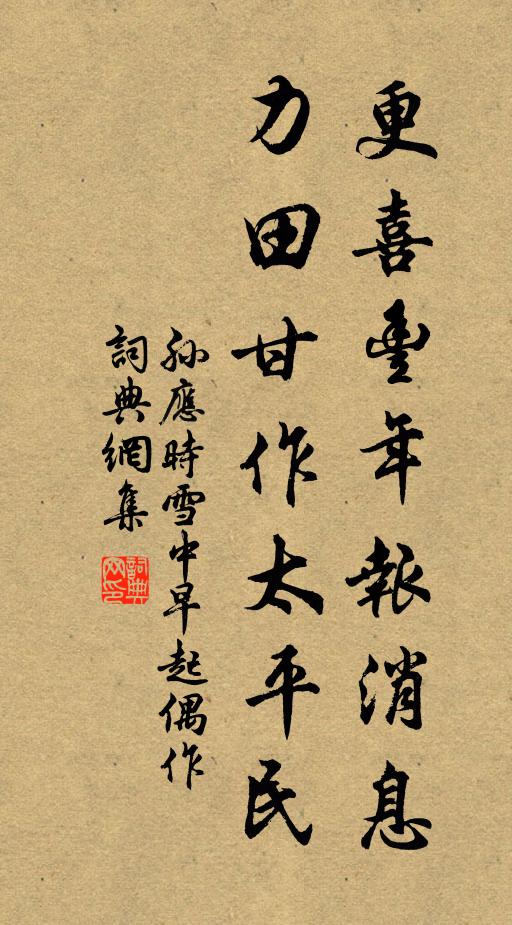 更喜豐年報消息
力田甘作太平民
孫應時雪中早起偶作
詞典網集
詞典网印